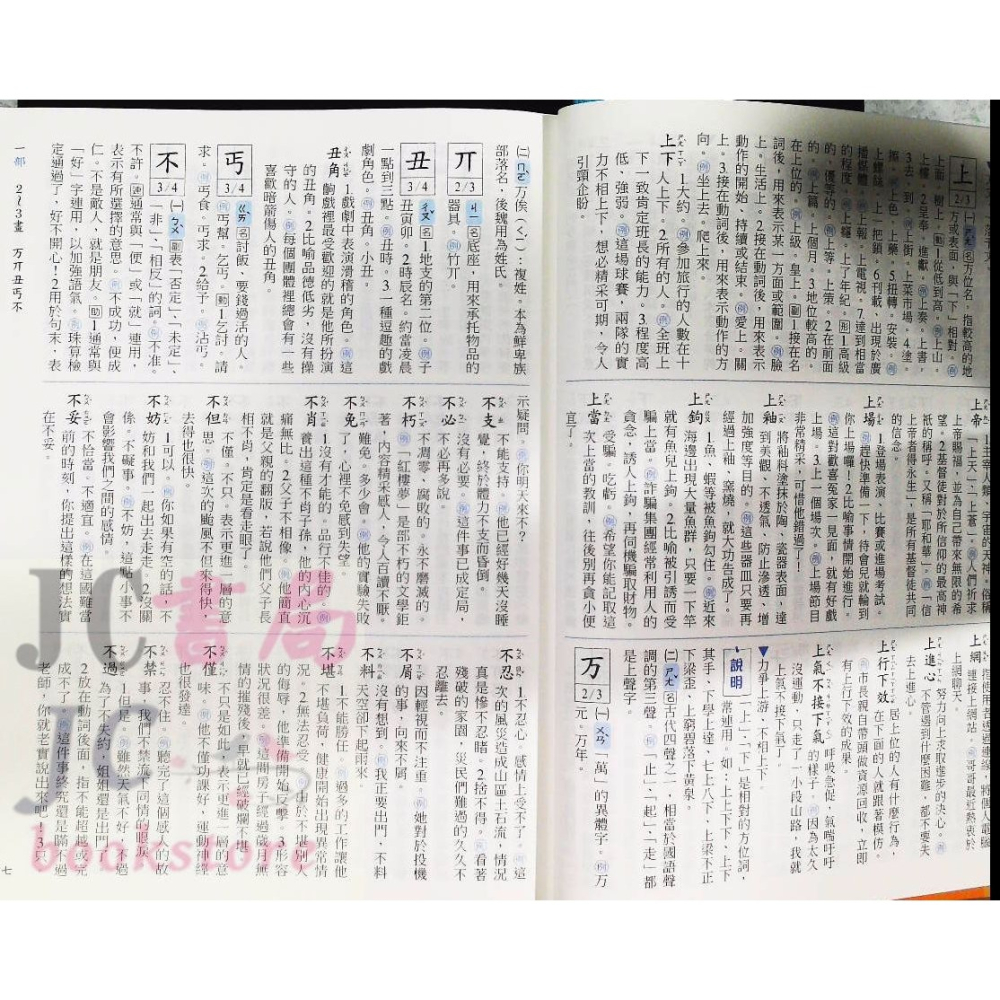 上
2/3
名方位名,指較高的地
方或表面,與「下」相對。例
上人下ㄒㄧㄚˋ
1.大約。例參加旅行的人數在十
人上下。2.所有的人。例全班上
下一致肯定班長的能力。3.程度高
低、強弱。例這場球賽,兩隊的實
力不相上下,想必精采可期,令人
引頸企盼。
上帝
1.主宰人類、宇宙的天神。俗稱
「上天」、「上蒼」。例人們祈求
上帝賜福,並為自己帶來無限的希
望。2.基督徒對於所信仰的最高神
祇的稱呼。又稱「耶和華」。例「信
上帝者得永生」,是所有基督徒共同
的信念。
上場
1.登場表演、比賽或進場考試。
例趕快準備一下,待會兒就輪到
你上場囉!2.比喻事情開始進行。
例這對歡喜冤家一見面,就有好戲
上場。3.上一個場次。例上場節目
非常精采,可惜他錯過了!
上釉
將釉料塗抹於陶、瓷器表面,達
到美觀、不透氣、防止滲透、增
加強度等目的。例這些器皿只要再
經過上釉、窯燒,就大功告成了。
上鉤
1.魚、蝦等被魚鉤勾住。例近來
海邊出現大量魚群,只要一下竿
就有魚兒上鉤。2.比喻被引誘而受
騙上當。例詐騙集團經常利用人的
貪念,誘人上鉤,再伺機騙取財物。
上當
受騙。吃虧。例希望你能記取這
次上當的教訓,往後別再貪小便
宜了。
上網
連接上網站。例哥哥最近熱衷於
上網聊天。
上進心
努力向上求取進步的決心。例
不管遇到什麼困難,都不要失
去上進心。
上行下效
居上位的人有什麼行為,
在下面的人就跟著模仿。
例市長親自帶頭做資源回收,立即
有上行下效的成果。
上氣不接下氣
呼吸急促、氣喘吁吁
的樣子。例因為太久
沒運動,只走了一小段山路,我就
上氣不接下氣了。
▼力爭上游、不相上下
說明
1.「上」、「下」是相對的方位詞,
常連用,如:上上下下、上下
其手、下學上達、七上八下、上梁不正
下梁歪、上窮碧落下黃泉。
(二)ㄕㄤˇ名古代四聲之一,相當於國語聲
調的第三聲。例「止」、「起」、「走」都
是上聲字。
万
2/3
(一)ㄨㄢˋ「萬」的異體字。例万
元、万年。
(二)ㄇㄛˋ万俟(ㄑㄧˊ):複姓。本為鮮卑族
部落名,後魏用為姓氏。
丌
2/3
ㄐㄧ名底座,用來承托物品的
器具。例竹丌。
丑
3/4
ㄔㄡˇ名1.地支的第二位。例子
丑寅卯。2.時辰名。約當凌晨
一點到三點。例丑時。3.一種逗趣的戲
劇角色。例丑角、小丑。
丑角
1.戲劇中表演滑稽的角色。例這
齣戲裡最受歡迎的就是他所扮演
的丑角。2.比喻品德低劣,沒有操
守的人。例每個團體裡總會有一些
喜歡暗箭傷人的丑角。
丐
3/4
ㄍㄞˋ名討飯、要錢過活的人。
例丐幫、乞丐。動1.乞討。請
求。例丐食、丐求。2.給予。例沾丐。
不
3/4
(一)ㄅㄨˋ副表「否定」、「未定」、
「非」、「相反」的詞。例不准、
不許。連與「便」或「就」連用,
表示有所選擇的意思。例不成功,便成
仁、不是敵人,就是朋友。助1.通常與
「好」字連用,以加強語氣。例珠算檢
定通過了,好不開心!2.用於句末,表
示疑問。例你明天來不?
不支
不能支持。例他已經好幾天沒睡
覺,終於體力不支而昏倒。
不必
沒有必要。例這件事已成定局,
不必再多說。
不朽
不凋零、腐敗的。永不磨滅的。
例「紅樓夢」是部不朽的文學鉅
著,內容精采感人,令人百讀不厭。
不免
難免。多少會。例他的實驗失敗
了,心裡不免感到失望。
不肖
1.沒有才能的。品行不佳的。例
養出這種不肖子孫,他的內心沉
痛無比。2.父子不相像。例他簡直
就是父親的翻版,若說他們父子長
相不肖,肯定是看走眼了!
不但
不僅。不只。表示更進一層的意
思。例這次的颱風不但來得快,
去得也很快。
不妨
1.可以。例你如果有空的話,不
妨和我們一起出去走走。2.沒關
係。不礙事。例不妨,這點小事不
會影響我們之間的感情。
不妥
不恰當。不適宜。例在這國難當
前的時刻,你提出這樣的想法實
在不妥。
不忍
1.不忍心。感情上受不了。例這
次的風災造成山區土石流,情況
真是慘不忍睹。2.捨不得。例看著
殘破的家園,災民們難過的久久不
忍離去。
不屑
因輕視而不注重。例她對於投機
的事,向來不屑。
不料
沒有想到。例我正要出門,不料
天空卻下起雨來。
不堪
1.不能勝任。例過多的工作讓他
不堪負荷,健康開始出現異常情
況。2.無法忍受。例由於不堪別人
的侮辱,他準備開始反擊。3.形容
狀況很差。例這間房子經過歲月無
情的摧殘後,早就已經破爛不堪。
不僅
不只是如此。表示更進一層的意
味。例他不僅功課好,運動神經
也很發達。
不禁
忍不住。例聽完了這個感人的故
事,我們不禁流下同情的眼淚。
不過
1.但是。例雖然天氣不好,不過
為了不失約,姐姐還是出門了。
2.放在動詞後面,指不能超越或完
成不了。例這件事終究還是瞞不過
老師,你就老實說出來吧!3.只
一部 2~3畫 万丌丑丐不
七
JC書局
JC's
bookstore